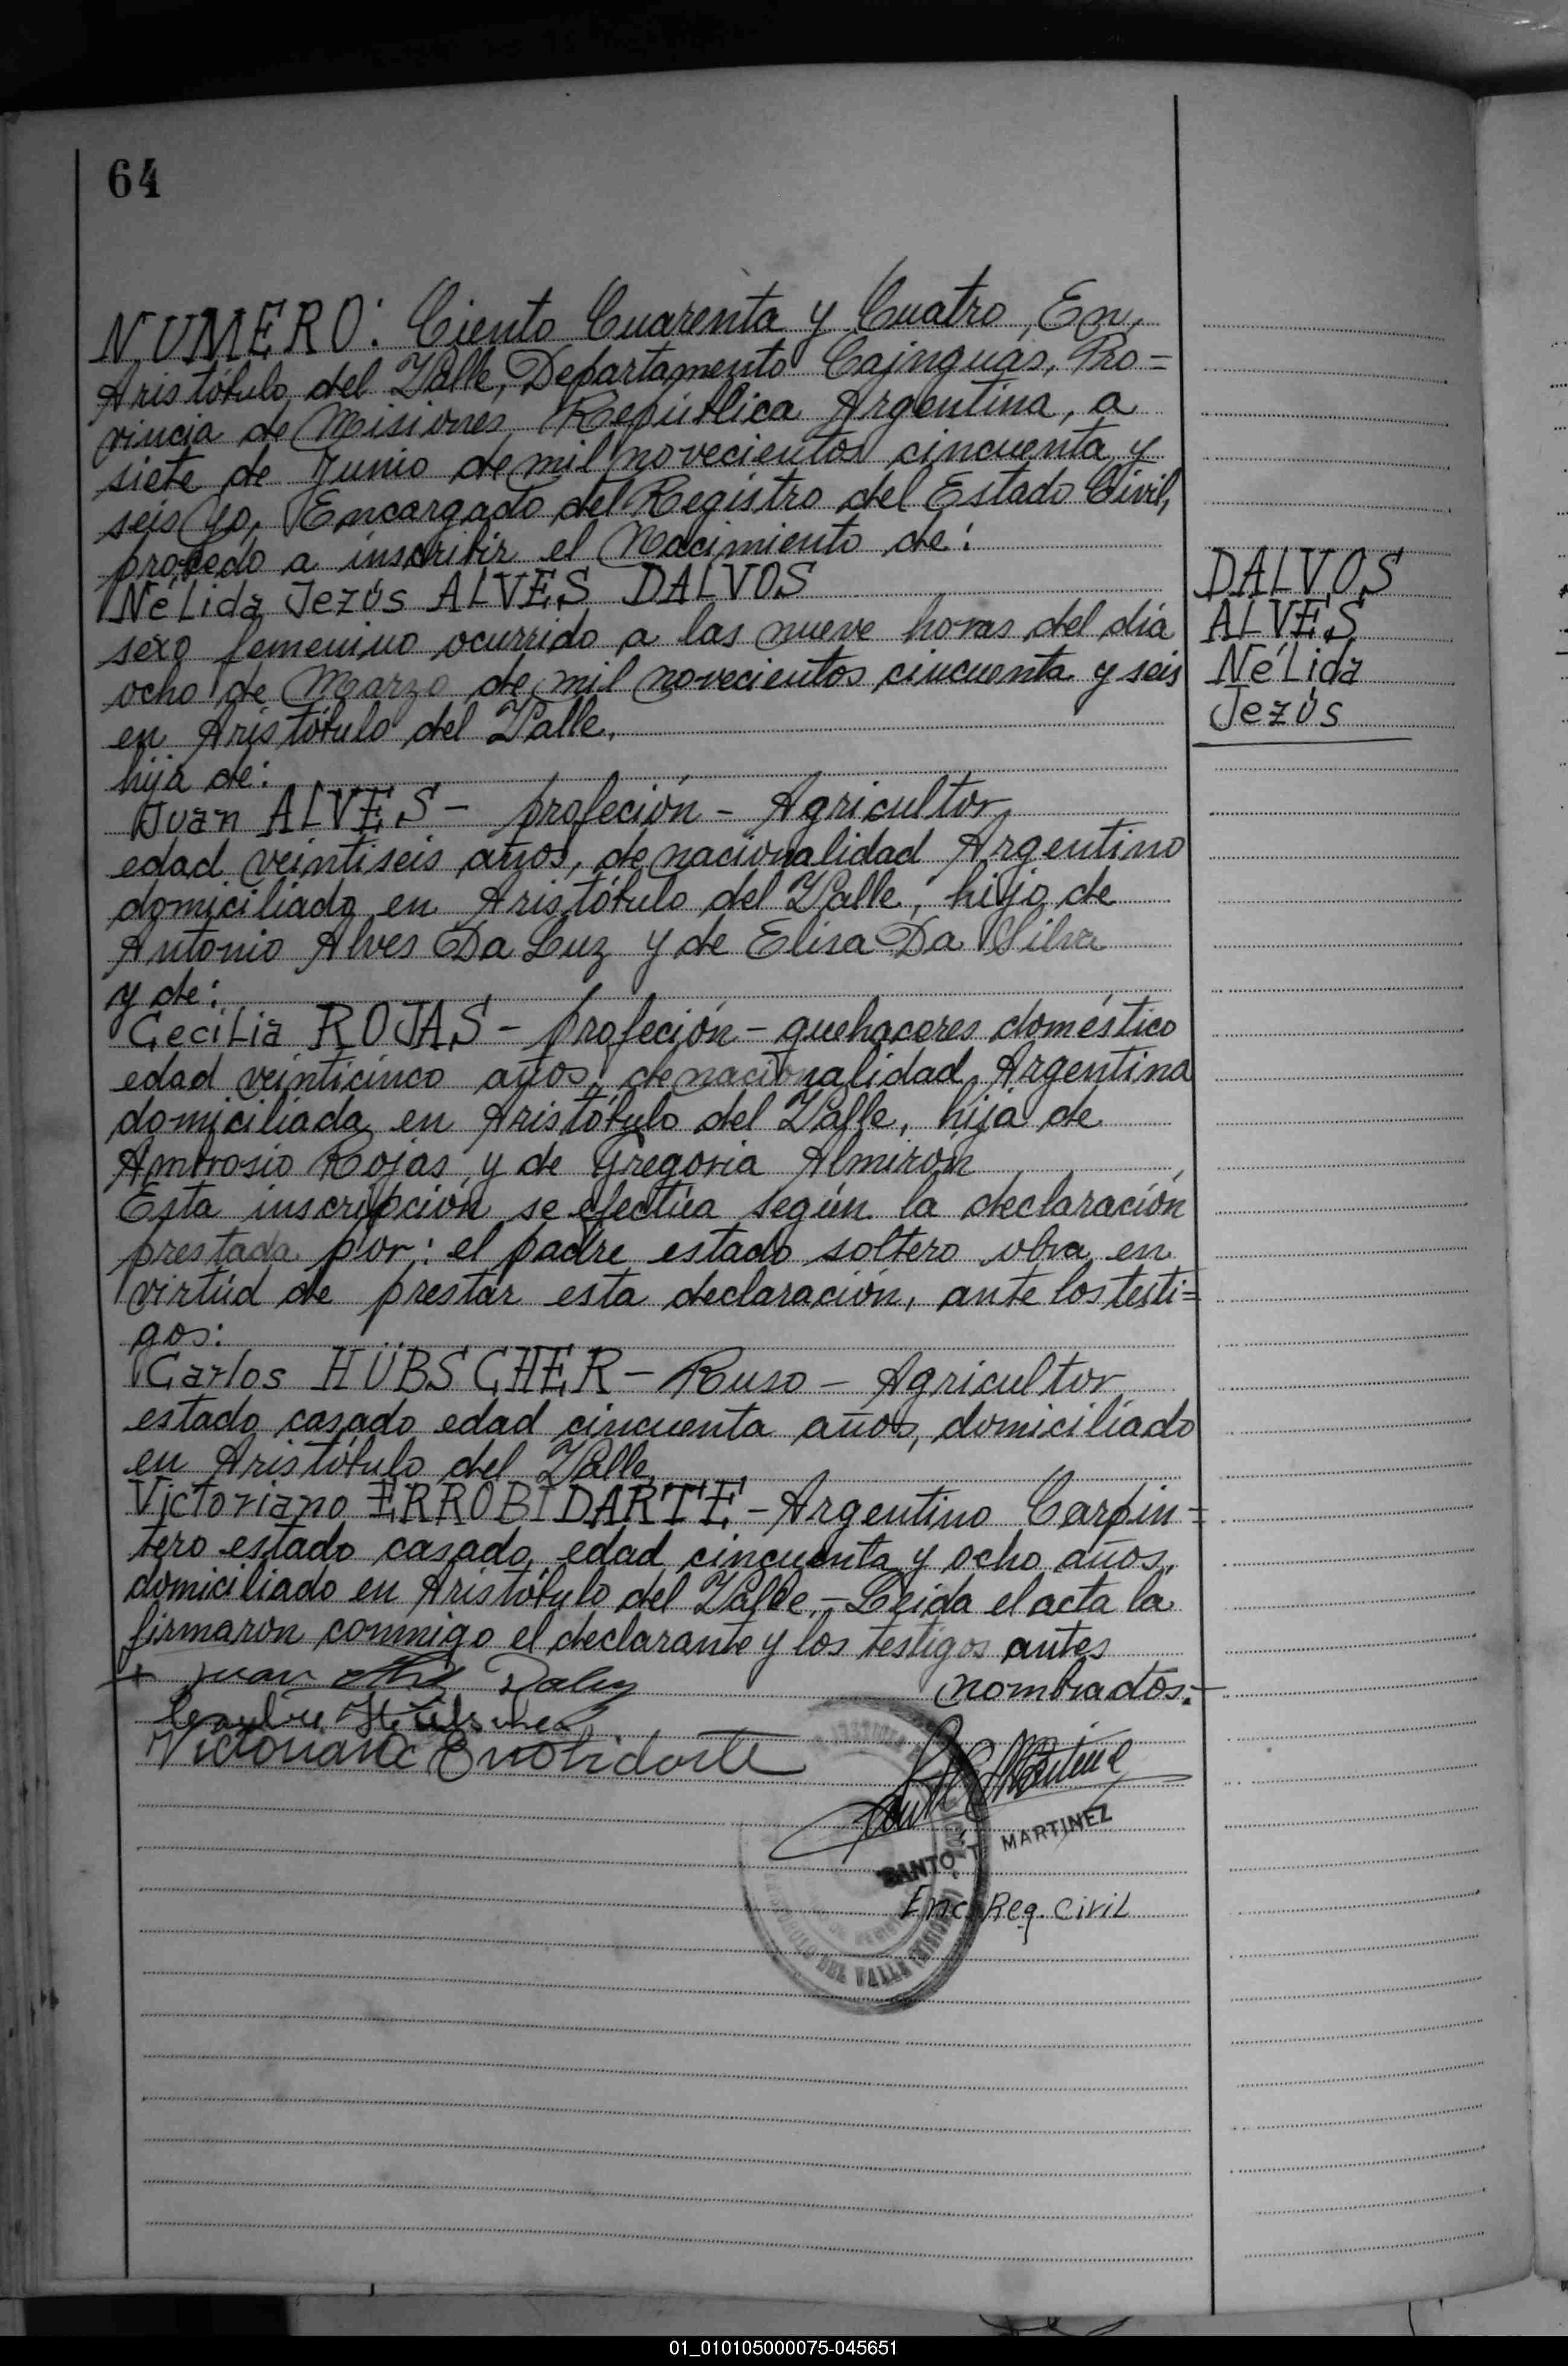 64
NUMERO: Ciento Cuarenta y Cuatro, En,
Aristóbulo del Valle, Departamento Cainguás, Pro=
vincia de Misiones, República Argentina, a
siete de Junio de mil novecientos cincuenta y
seis Yo, Encargado del Registro del Estado Civil,
procedo a inscribir el Nacimiento de:
Nélida Jezús ALVES DALVOS
sexo femenino ocurrido a las nueve horas del día
ocho de Marzo de mil novecientos cincuenta y seis
en Aristóbulo del Valle.
hija de:
Juan ALVES - profeción - Agricultor
edad veintiseis años, de nacionalidad Argentino
domiciliado en Aristóbulo del Valle, hijo de
Antonio Alves Da Luz y de Elisa Da Silva
y de:
Cecilia ROJAS - profeción - quehaceres doméstico
edad veinticinco años, de nacionalidad Argentina
domiciliada en Aristóbulo del Valle, hija de
Ambrosio Rojas y de Gregoria Almirón
Esta inscripción se efectúa según la declaración
prestada por: el padre estado soltero obra en
virtúd de prestar esta declaración, ante los testi=
gos:
Carlos HÜBSCHER - Ruso - Agricultor
estado casado edad cincuenta años, domiciliado
en Aristóbulo del Valle.
Victoriano ERROBIDARTE - Argentino Carpin=
tero estado casado, edad cincuenta y ocho años,
domiciliado en Aristóbulo del Valle. - Leida el acta la
firmaron conmigo el declarante y los testigos antes
nombrados.-
+ Juan
Hübscher
Victoriano Errobidarte
SANTO T. MARTINEZ
Enc. Reg. Civil
DEL VALLE
DALVOS
ALVES
Nélida
Jezús
01_010105000075-045651